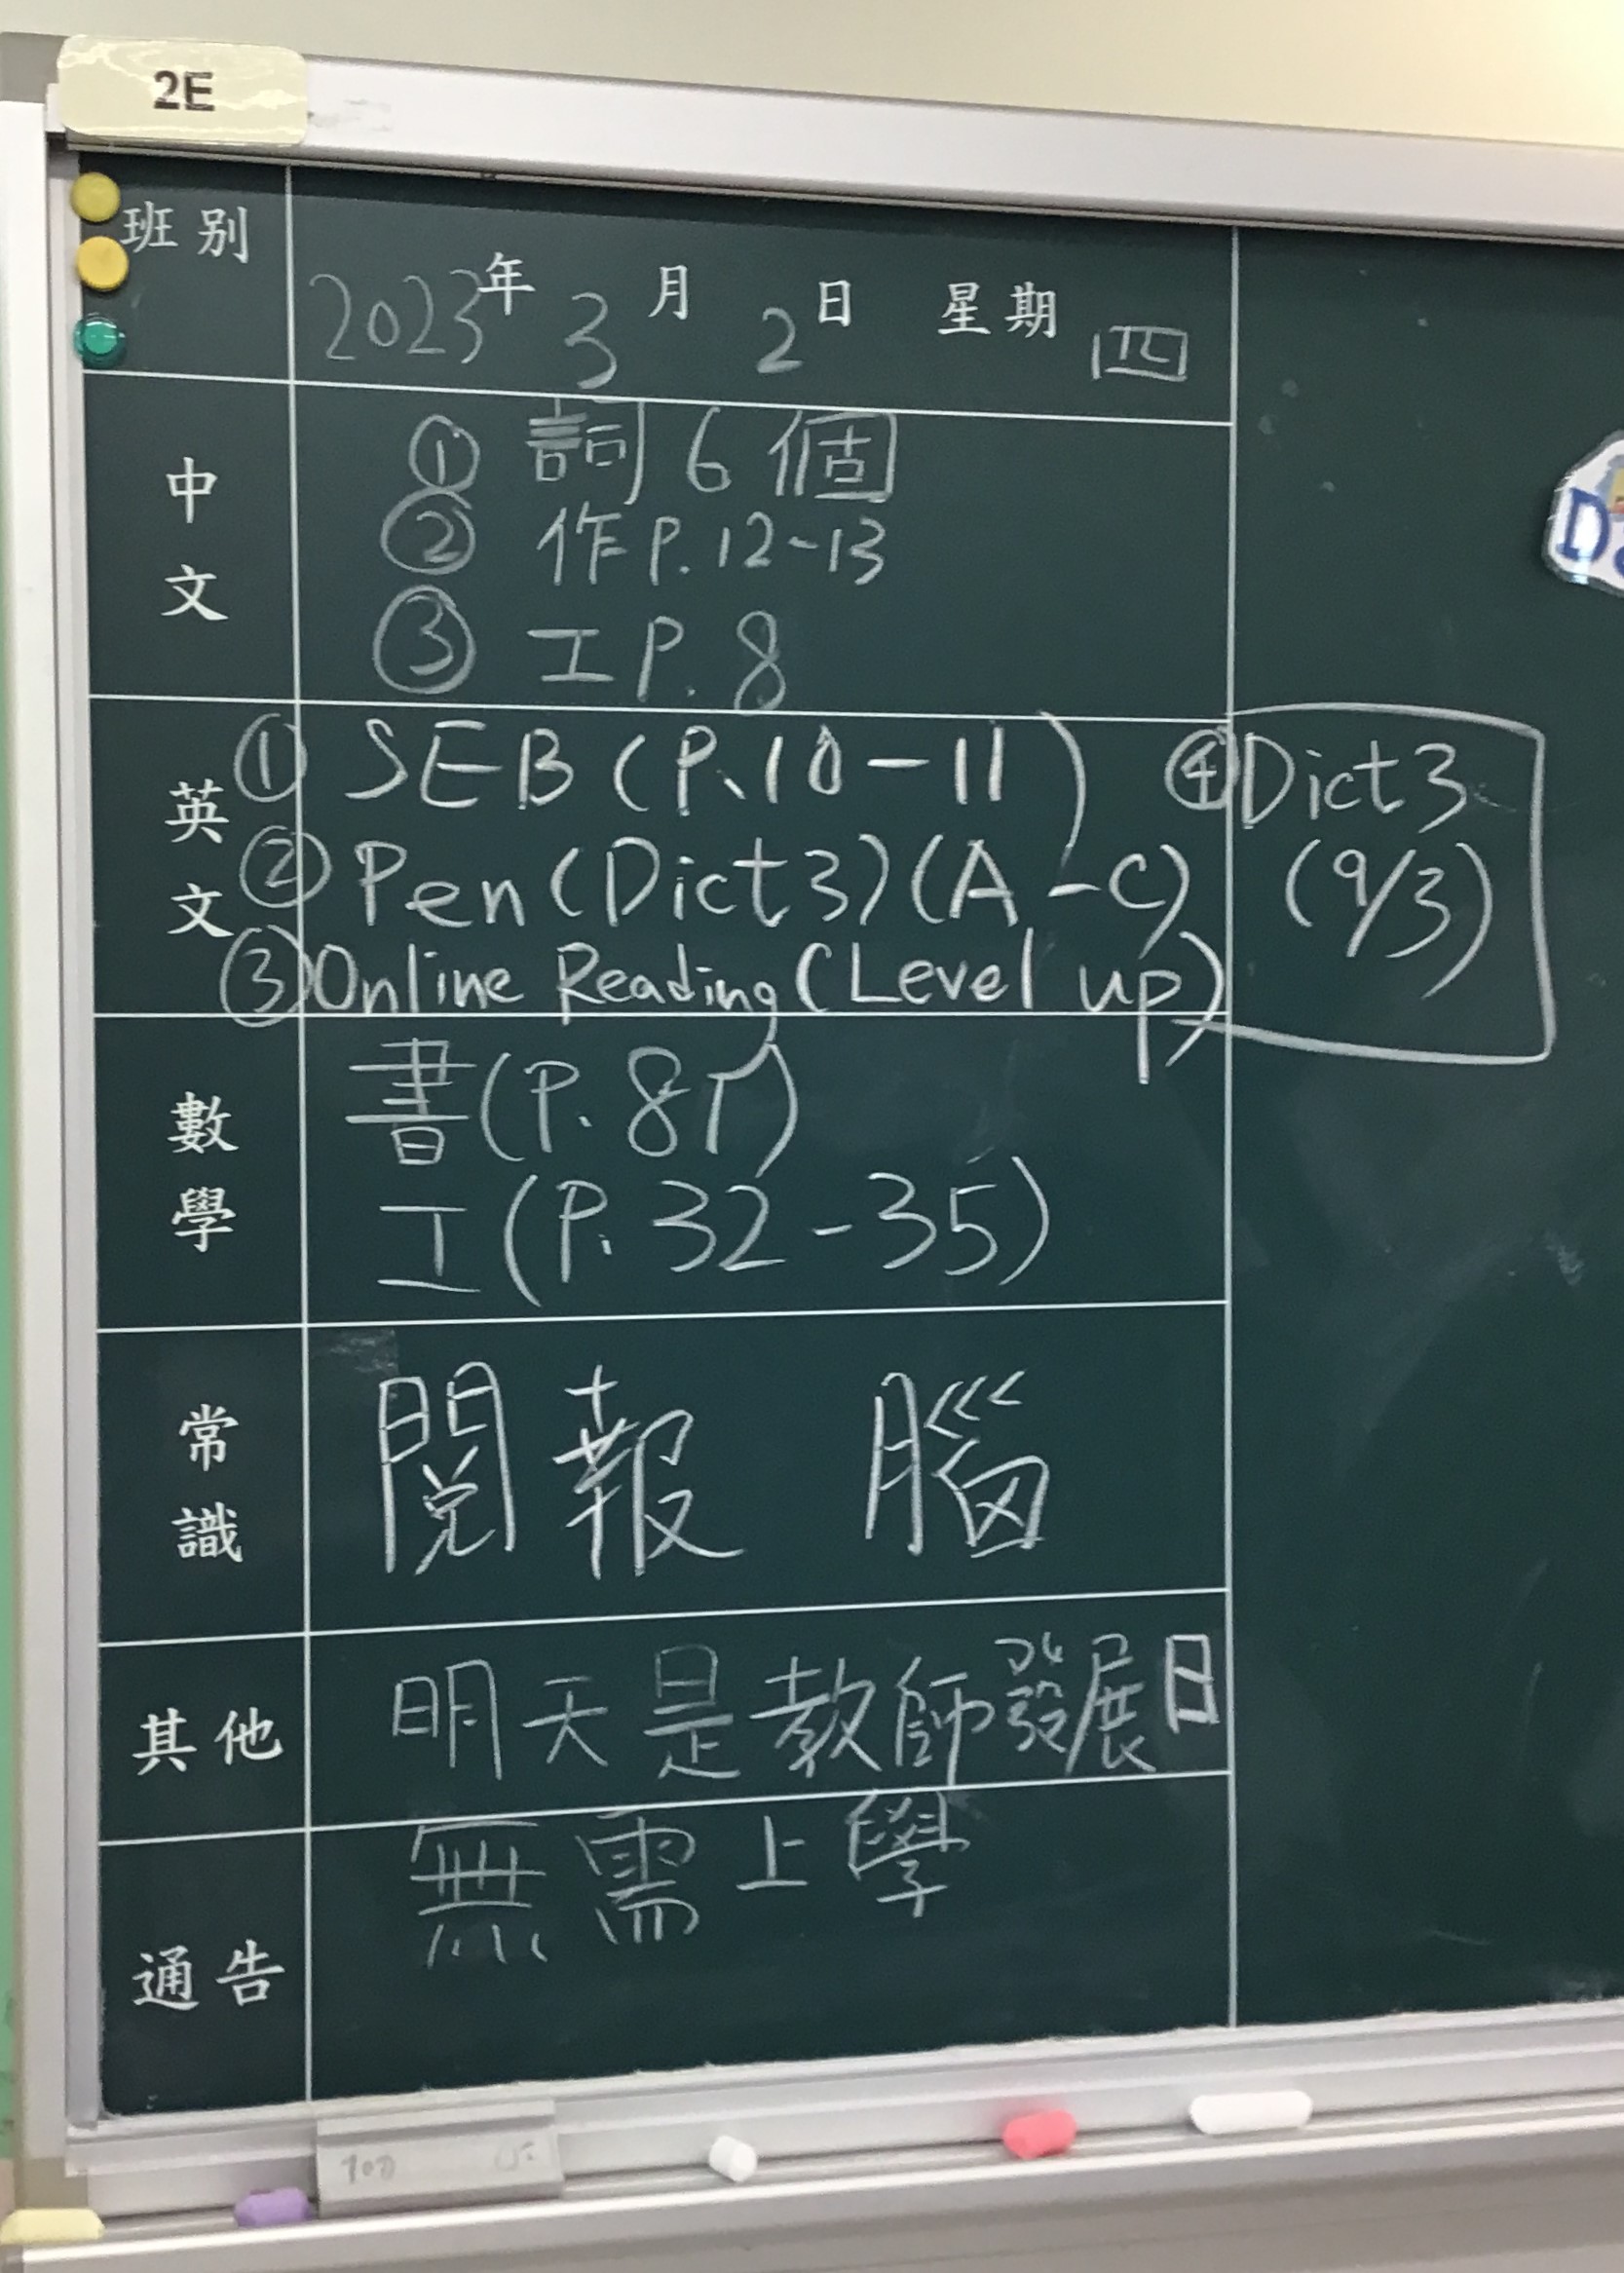 2E
班別
2023年3月2日 星期四
中文
① 詞6個
② 作P.12-13
③ 工P.8
英文
① SEB (P.10-11)
② Pen (Dict 3) (A-C)
③ Online Reading (Level up)
④ Dict 3
(9/3)
數學
書(P.87)
工(P.32-35)
常識
閱報 腦
其他
明天是教師發展日
通告
無需上學